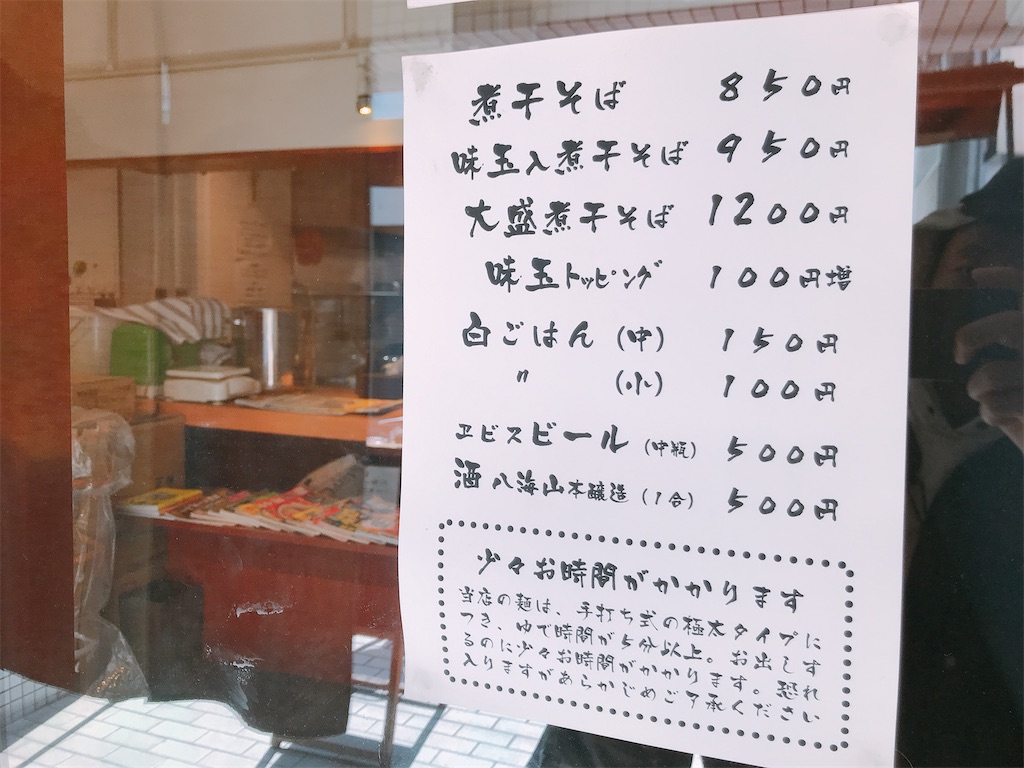 煮干そば 850円
味玉入煮干そば 950円
大盛煮干そば 1200円
味玉トッピング 100円増
白ごはん（中） 150円
〃 （小） 100円
ヱビスビール（中瓶） 500円
酒 八海山本醸造（1合） 500円
少々お時間がかかります
当店の麺は、手打ち式の極太タイプに
つき、ゆで時間が5分以上。お出しす
るのに少々お時間がかかります。恐れ
入りますがあらかじめご了承ください